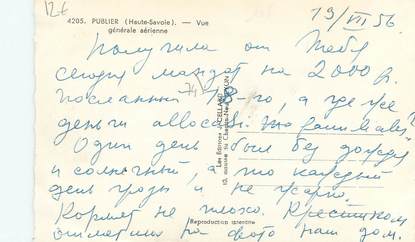 12 €
4205. PUBLIER (Haute-Savoie). — Vue
générale aérienne
19/VII 56
Получила от Тебя
сегодня мандат на 2000 fr.
посланный 18-го, а где же
деньги allocations familiales?
Один день был без дождя
и солнечный, а то каждый
день грозы и не жарко.
Кормят не плохо. Крестиком
отметила на фото наш дом.
Les Éditions J. CELLARD
Reproduction interdite